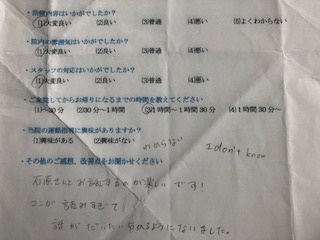 ・治療内容はいかがでしたか？
(1)大変良い (2)良い (3)普通 (4)悪い (5)よくわからない
・院内の雰囲気はいかがでしたか？
(1)大変良い (2)良い (3)普通 (4)悪い
・スタッフの対応はいかがでしたか？
(1)大変良い (2)良い (3)普通 (4)悪い
・ご来院してからお帰りになるまでの時間を教えてください
(1)～30分 (2)30分～1時間 (3)1時間～1時間30分 (4)1時間30分～
・当院の運動指導に興味がありますか？
(1)興味がある (2)興味がない わからない I don't know
・その他のご感想、改善点をお聞かせください
石原さんとお話するのが楽しいです！
マンガ読みすぎて
話がだいたい分るようになりました。